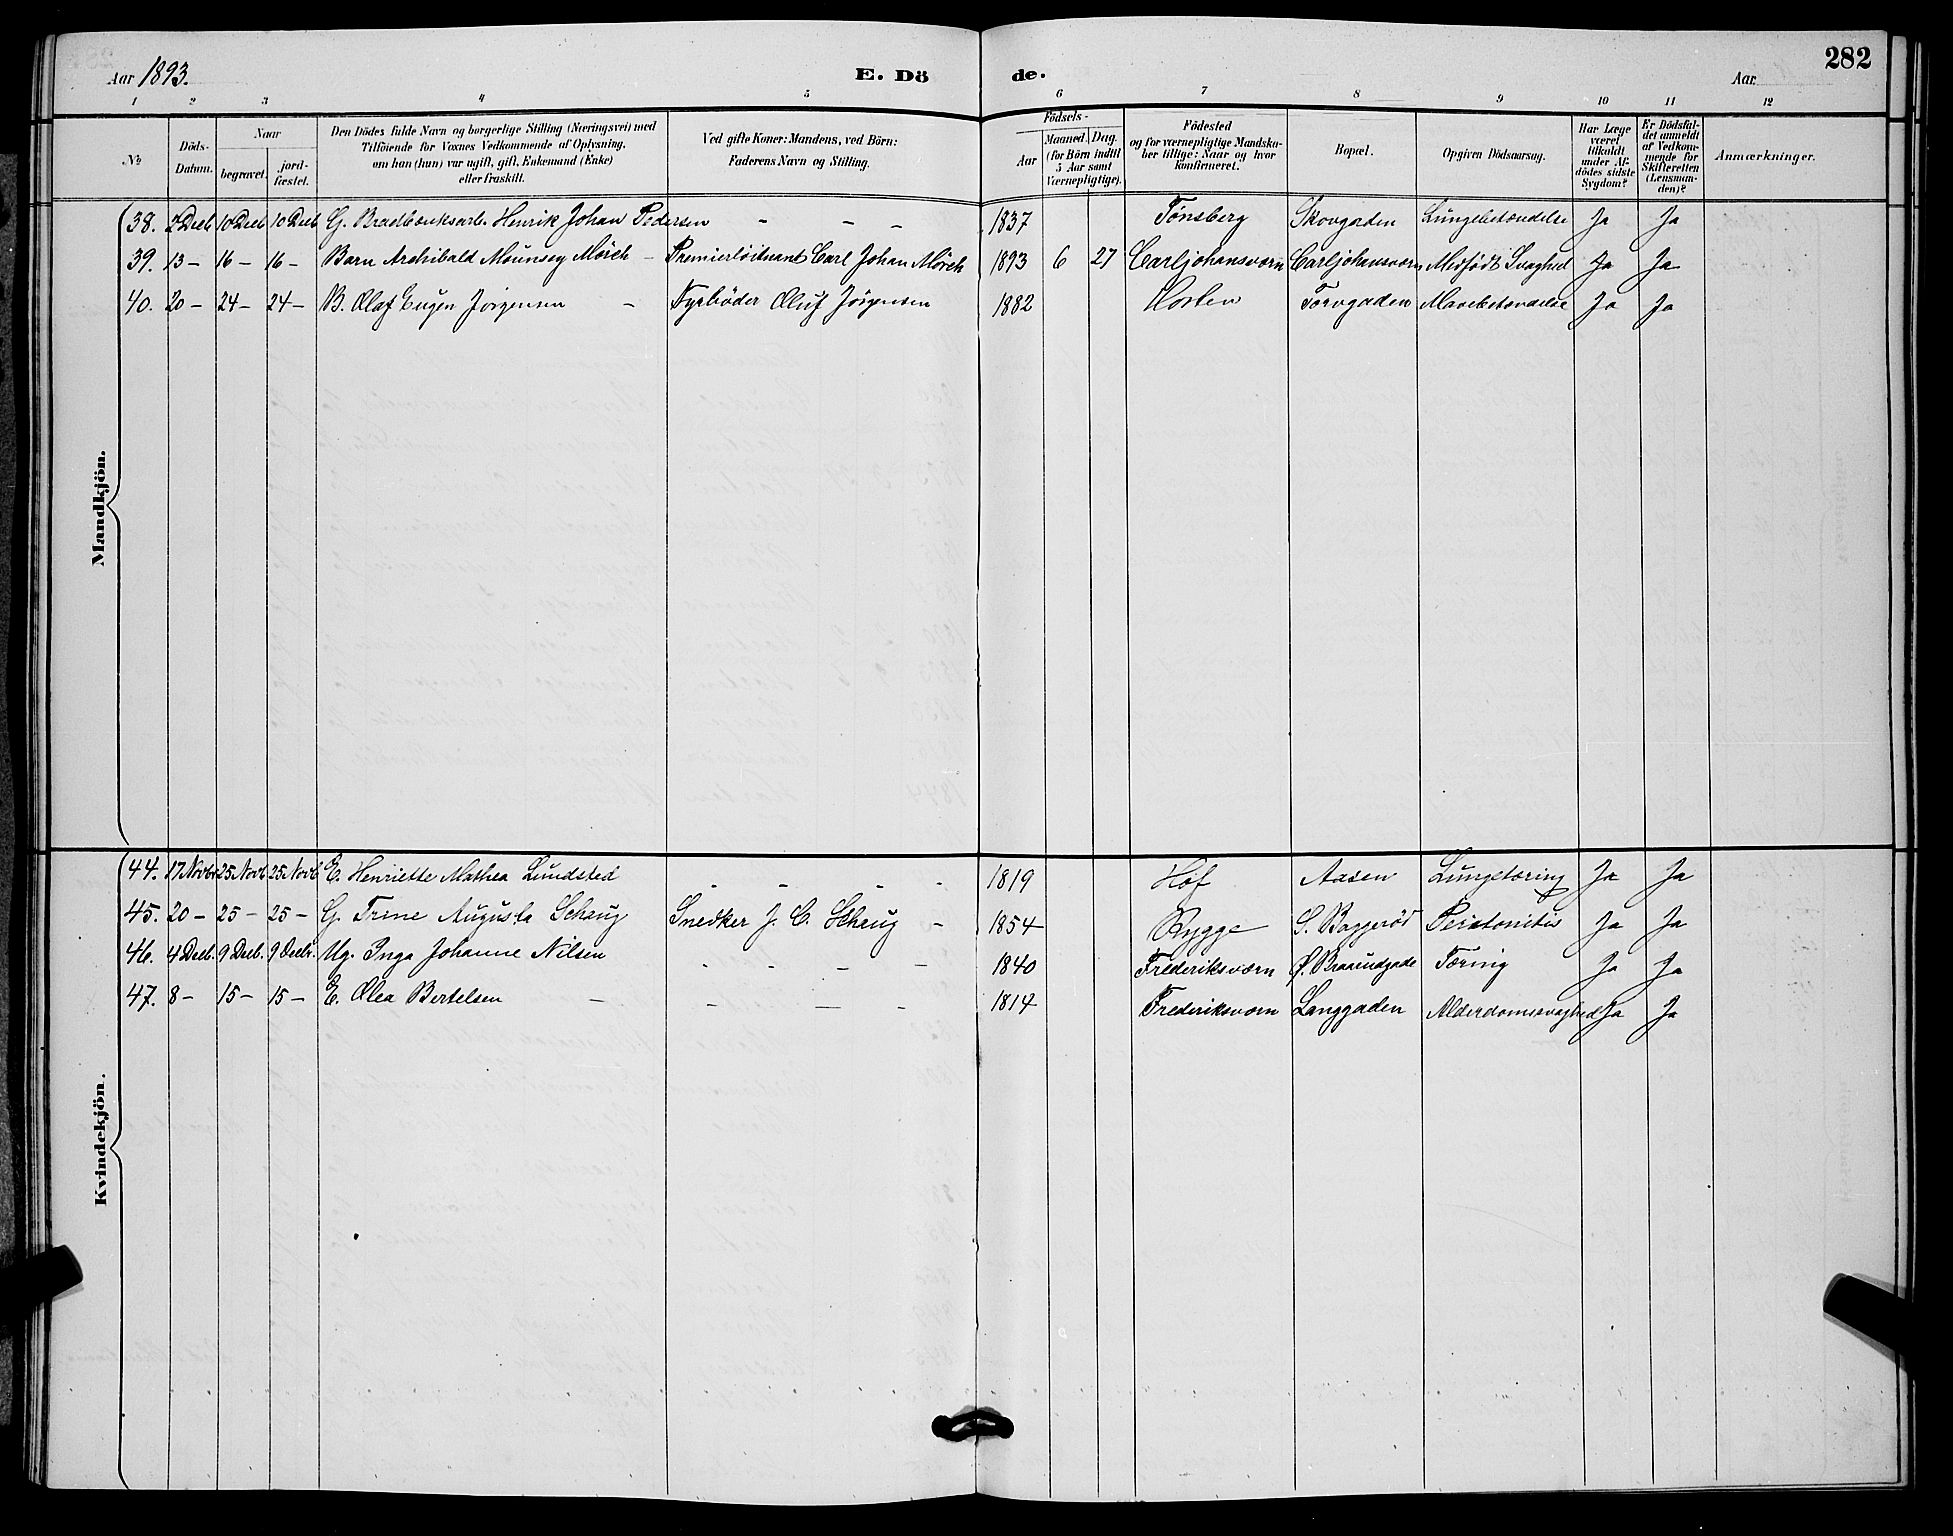 Aar 1893. E. Dö de. Aar 282
1 2 3 4 5 6 7 8 9 10 11 12
№ Döds-Datum. Naar begravet. jord-fæstet. Den Dödes fulde Navn og borgerlige Stilling (Næringsvei) med Tilföiende for Voxnes Vedkommende af Oplysning, om han (hun) var ugift, gift, Enkemand (Enke) eller fraskilt. Ved gifte Koner: Mandens, ved Börn: Faderens Navn og Stilling. Födsels- Aar Maaned. Dag. (for Börn indtil 5 Aar samt Værnepligtige). Födested og for værnepligtige Mandska-ber tillige: Naar og hvor konfirmeret. Bopæl. Opgiven Dödsaarsag. Har Læge været tilkaldt under Af-dödes sidste Sygdom? Er Dödsfal-det anmeldt af Vedkom-mende for Skifteretten (Lensman-den)? Anmærkninger.
Mandkjön.
38. 2 Decb. 10 Decb 10 Decb G. Bradbænksarb. Henrik Johan Pedersen - - - 1837 Tønsberg Skovgaden Lungebetændelse Ja Ja
39. 13 - 16 - 16 - Barn Archibald Mounsey Mörch - Premierlöitnant Carl Johan Mörch 1893 6 27 Carljohansværn Carljohansværn Medfödt Svaghed Ja Ja
40. 20 - 24 - 24 - B. Olaf Eugen Jörgensen - Fyrböder Oluf Jörgensen 1882 Horten Torvgaden Mavebetændelse Ja Ja
Kvindekjön.
44. 17 Novbr 25 Novb. 25 Novb. E. Henriette Mathea Lundsted - - - - 1819 Hof Aasen Lungetæring Ja Ja
45. 20 - 25 - 25 - G. Trine Augusta Schaug Snedker J. C. Schaug - 1854 Rygge S. Baggerød Peritonitis Ja Ja
46. 4 Decb. 9 Decb. 9 Decbr. Ug. Inga Johanne Nilsen - - - - 1840 Frederiksværn Ø. Braaudgade Tæring Ja Ja
47. 8 - 15 - 15 - E. Olea Bertelsen - - - - 1814 Frederiksværn Langgaden Alderdomssvaghed Ja Ja